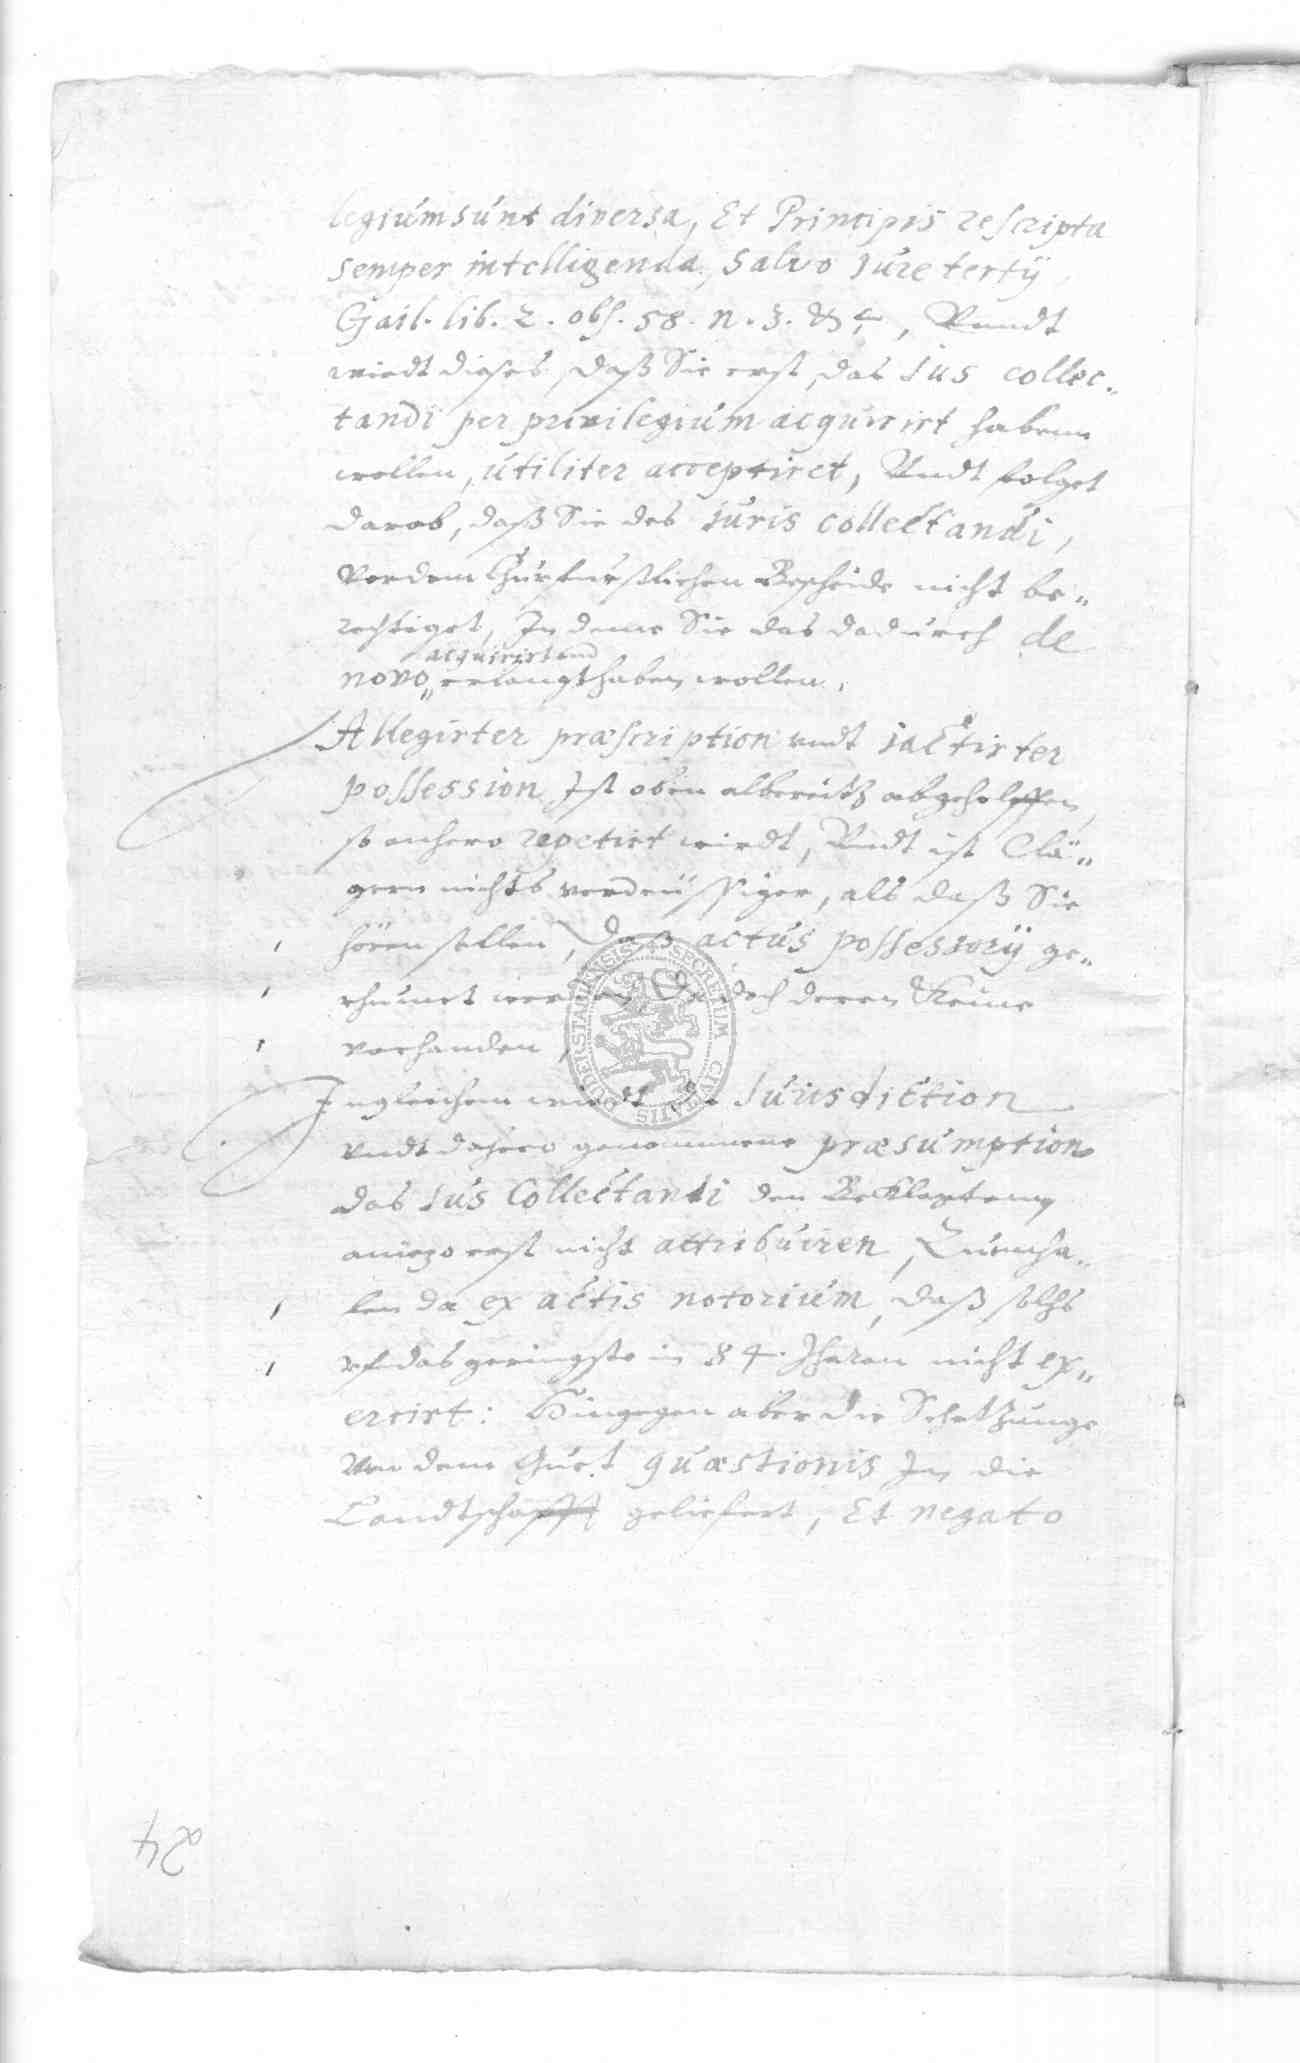 legium sunt diversa, Et Principis rescripta
semper intelligenda, salvo jure tertÿ,
Gail. lib. 2. obs. 58. n. 3. & 4, Vundt
wirdt dieses, daß Sie erst, das Jus collec„
tandi per privilegium acquirirt habenn
wollen, utiliter acceptiret, Undt folget
darob, daß Sie des juris collectandi,
Vor dem Churfurstlichen Bescheide nicht be„
rechtiget, In deme Sie das dadurch de
acquirirt und
novo„ erlangt haben wollen.
Allegirter præscription undt jactirter
possession Ist oben albereitz abgeholffen,
so anhero repetirt wirdt, Undt ist Clä„
gern nichts verdrüssiger, als daß Sie
hören sollen, daß actus possessorÿ ge„
rhumet werden, Da doch deren Keine
vorhanden,
Ingleichem wirdt die Jurisdiction
undt dahero genommene præsumption
das Jus Collectandi den Beklagtenn
anietzo erst nicht attribuiren, Zumha„
len da ex actis notorium, daß solchs
uf das geringste in 84. Jharen nicht ex„
ercirt: Hingegen aber die Schatzunge
Von deme Guet quæstionis In die
Landtschafft geliefert, Et negato
SECRETUM CIVITATIS DUDERSTADIENSIS
24